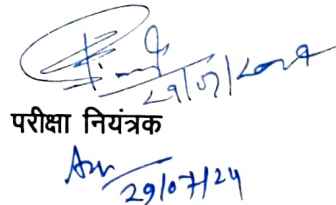 29/07/2024
परीक्षा नियंत्रक
29/07/24